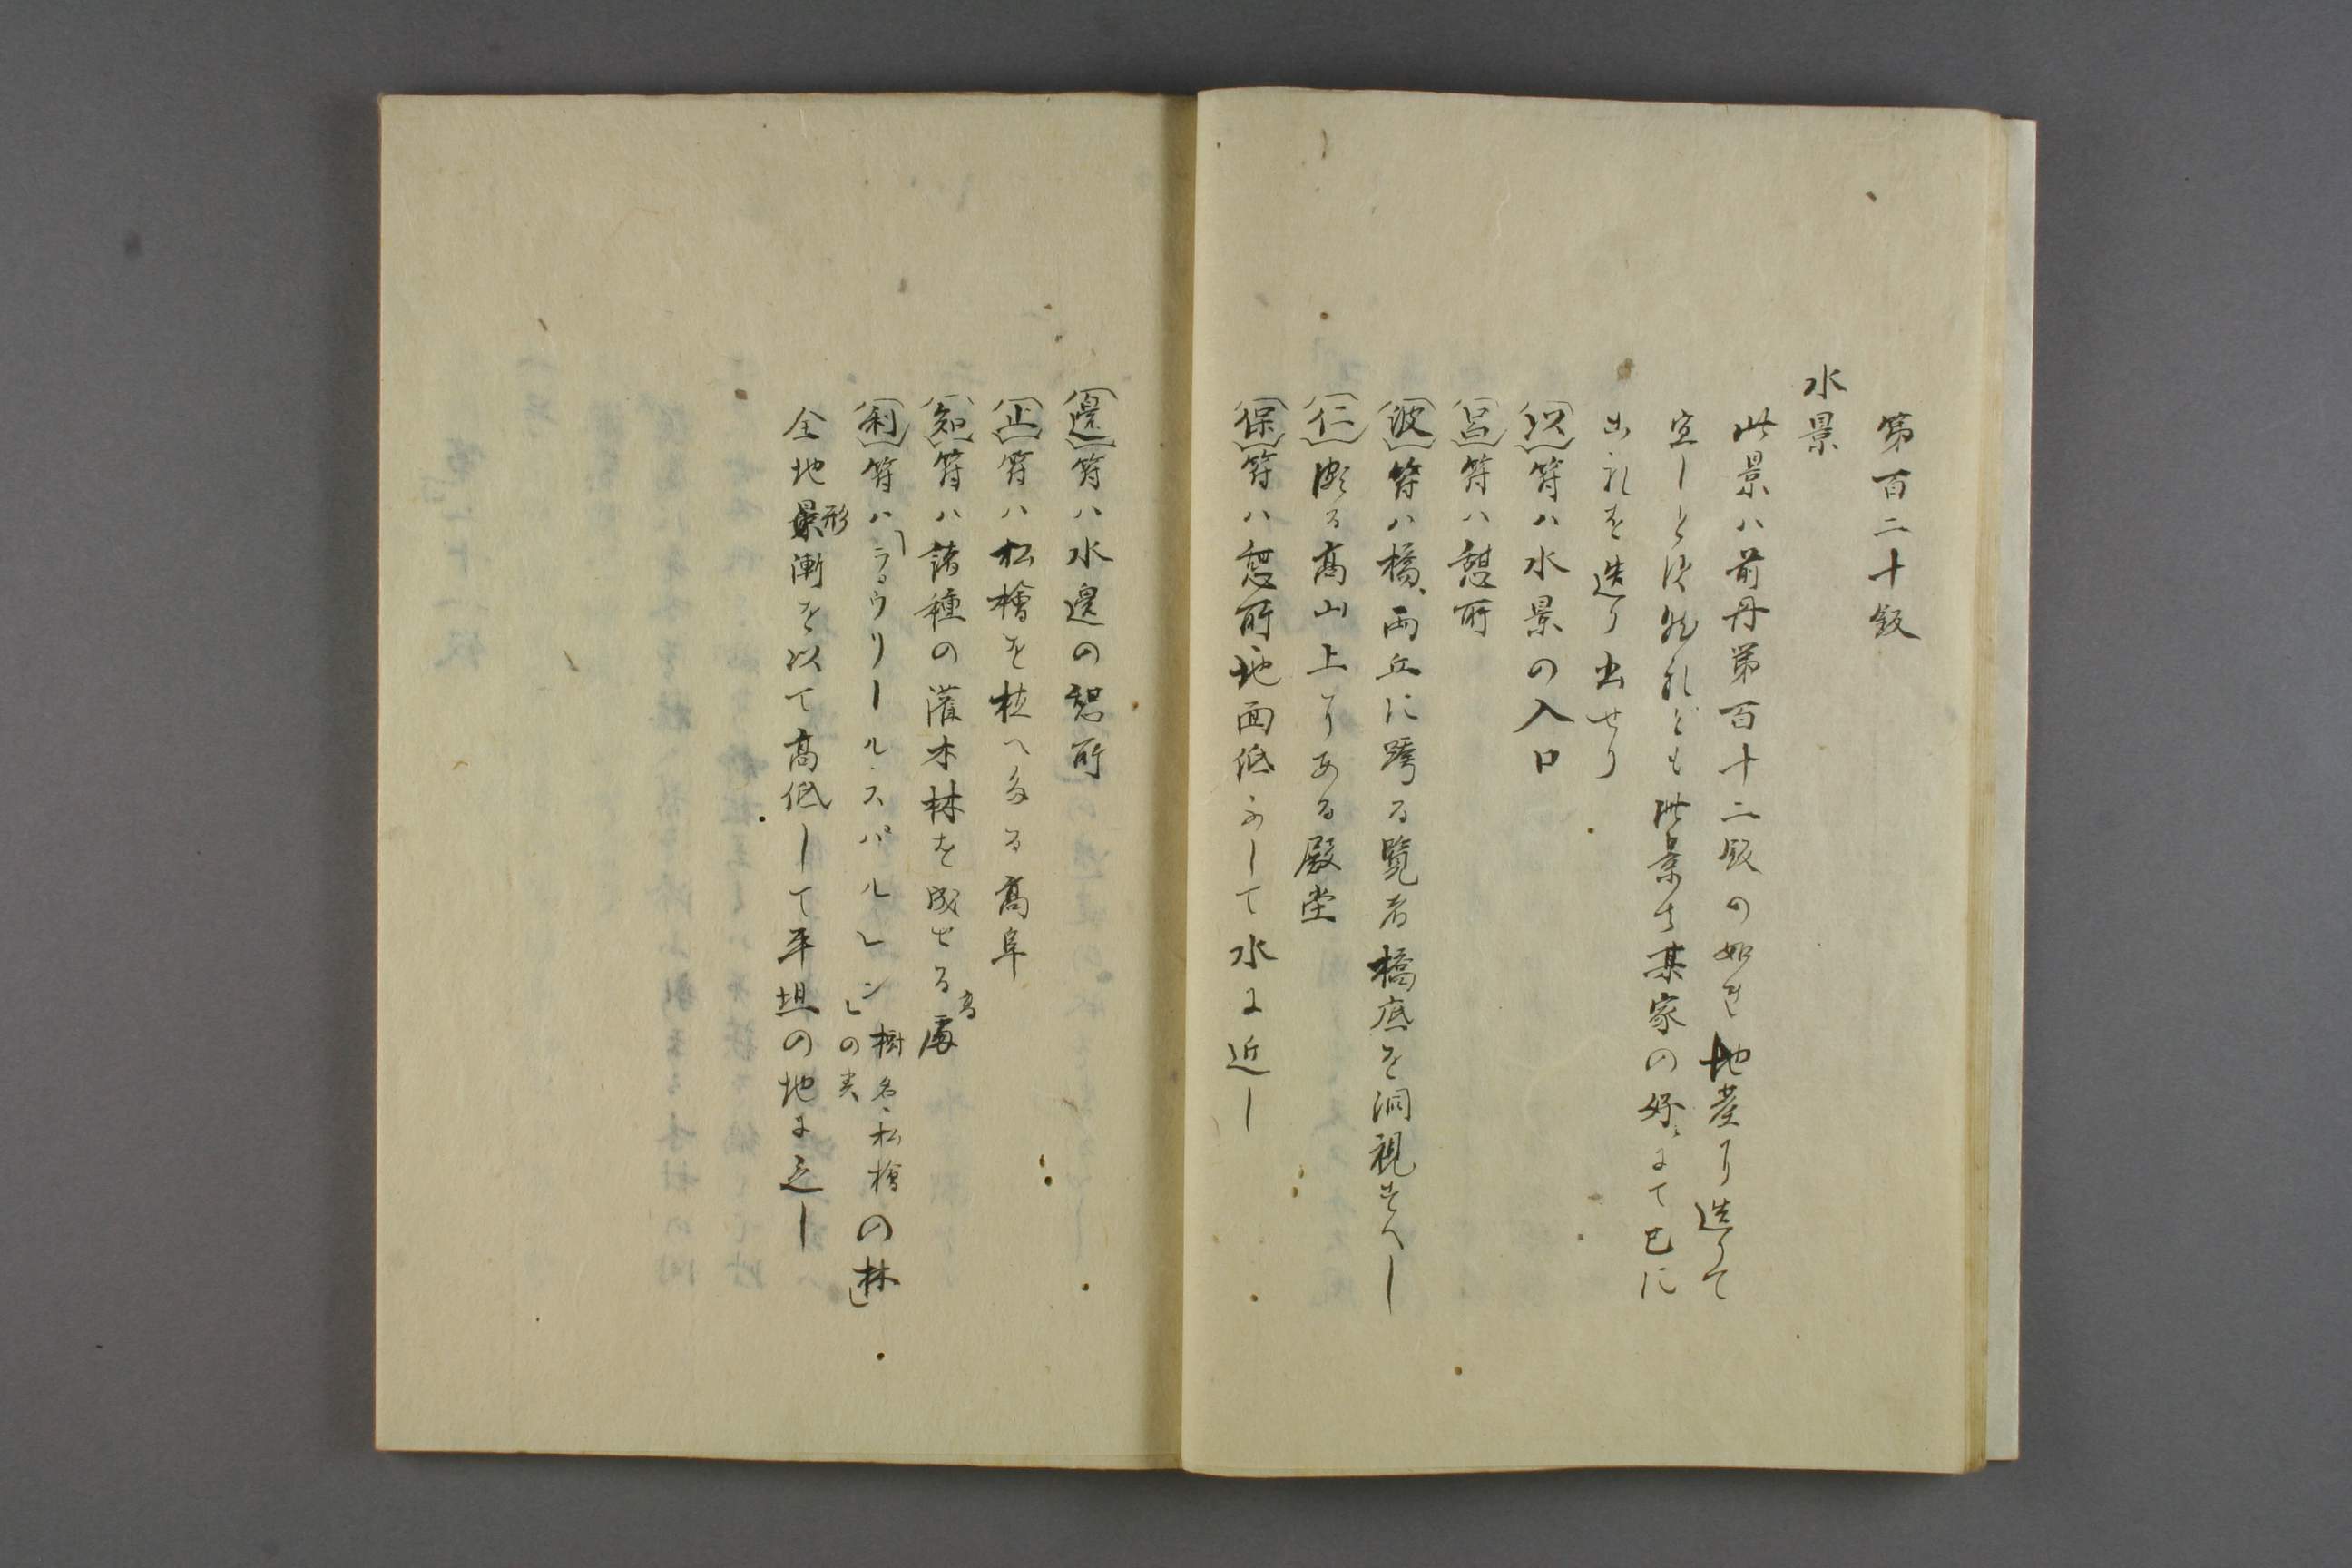 第百二十版
水景
此景ハ前丹第百十二版の如き地産り造りて
宜しと決然れども此景ち某家の好ミにて已に
これを造り出せり
(以)符ハ水景の入口
(呂)符ハ憩所
(波)符ハ橋、両丘に跨る覧者橋底を洞視すへし
(仁)頗る高山上りある殿堂
(保)符ハ憩所地面低ふして水に近し
(邊)符ハ水邊の憩所
(止)符ハ松檜を植へ多る高阜
(知)符ハ諸種の灌木林を成せる高處
(利)符ハ「ラウリールスパルレン」樹名松檜の類の林
全地景形漸を以て高低して平坦の地に之し